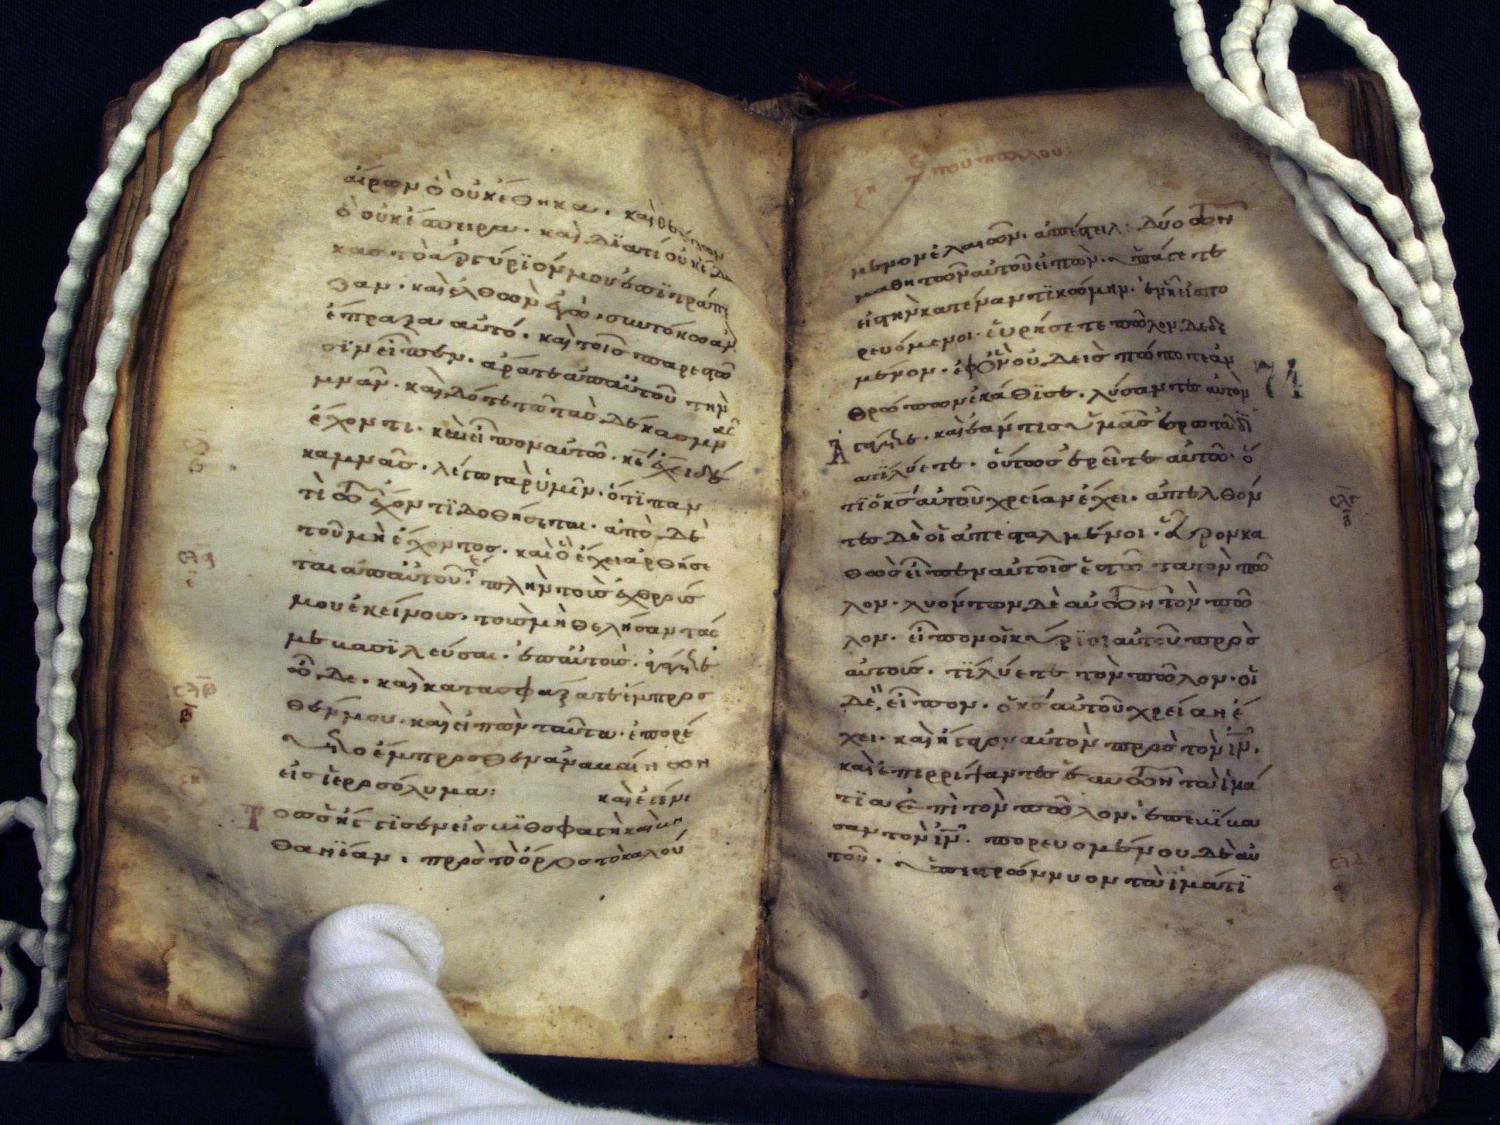 αἴρων ὃ οὐκ ἔθηκα. καὶ θερίζων
ὃ οὐκ ἔσπειρα. καὶ διατί οὐκ ἔδω
κας τὸ ἀργύριόν μου ἐπι τράπε
ζαν. καὶ ἐλθὼν ἐγὼ, σὺν τόκω ἂν
ἔπραξα αὐτό. καὶ τοῖς παρεστῶ
σϊν εἶπεν. ἄρατε ἀπ αὐτοῦ τὴν
μνᾶν. καὶ δότε τῶ τὰς δέκα μν
ἔχοντι. καὶ εἶπον αὐτῶ. κε ἔχει δέ
κα μνᾶς. λέγω γὰρ ὑμῖν. ὅτι παν
τὶ τῶ ἔχοντϊ δοθήσεται. ἀπὸ δὲ
τοῦ μὴ ἔχοντος. καὶ ὃ ἔχει ἀρθήσε
ται ἀπ αὐτοῦ. πλὴν τοὺς ἐχθρούς
μου ἐκείνους. τοὺς μὴ θελήσαντάς
με βασϊλεῦσαι. ἐπ αὐτούς. ἀγάγετε
ὧδε. καὶ κατασφάξατε ἔμπροσ
θέν μου. καὶ εἰπὼν ταῦτα. ἐπορεύ
ετο ἔμπροσθεν ἀναβαίνων
εἰς ϊεροσόλυμα: καὶ ἐγένε
το ὡς ἤγγϊσεν εἰς βηθσφαγὴ καὶ βη
θανϊαν. πρὸς τὸ ὄρος τὸ καλού
μενον ἐλαιῶν. ἀπέστειλε δύο τῶν
μαθητῶν αὐτοῦ εἰπών. ὑπάγετε
εἰς τὴν κατέναντϊ κώμην. ἐν ἧ εἰσπο
ρευόμενοι. εὑρήσετε πῶλον δεδε
μένον. ἐφ ὃν οὐδεὶς πώποτε ἀν
θρώπων ἐκάθϊσε. λύσαντες αὐτὸν
ἀγάγετε. καὶ ἐάν τις ὑμᾶς ἐρωτᾶ δϊ
ατϊ λύετε. οὕτως ἐρεῖτε αὐτῶ. ὅ
τϊ ὁ κς αὐτοῦ χρείαν ἔχει. ἀπελθόν
τες δὲ οἱ ἀπεσταλμένοι. εὗρον κα
θὼς εἶπεν αὐτοῖς ἑστῶτα τὸν πῶ
λον. λυόντων δὲ αὐτῶν τὸν πῶ
λον. εἶπον οἱ κύρϊοι αὐτοῦ πρὸς
αὐτούς. τϊ λύετε τὸν πῶλον. οἱ
δὲ εἶπον. ὁ κς αὐτοῦ χρείαν ἔ
χει. καὶ ἤγαγον αὐτὸν πρὸς τὸν ιν.
καὶ ἐπιρρίψαντες ἑαυτῶν τὰ ϊμά
τϊα ἐπὶ τὸν πῶλον. ἐπεβϊβα
σαν τὸν ιν. πορευομένου δὲ αὐ
τοῦ. ὑπεστρώννυον τὰ ϊμάτϊ
74